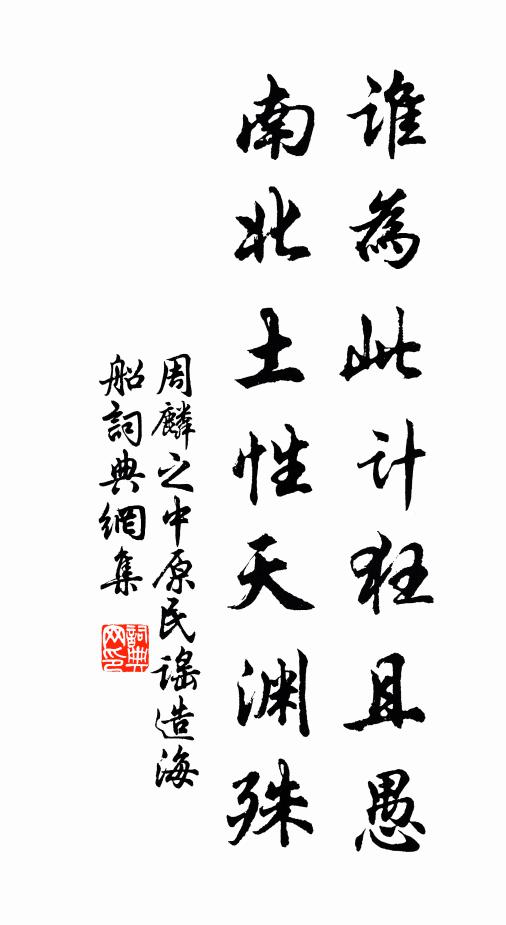 誰為此计狂且愚
南北土性天渊殊
周麟之中原民謠造海
船詞典網集
詞典网印